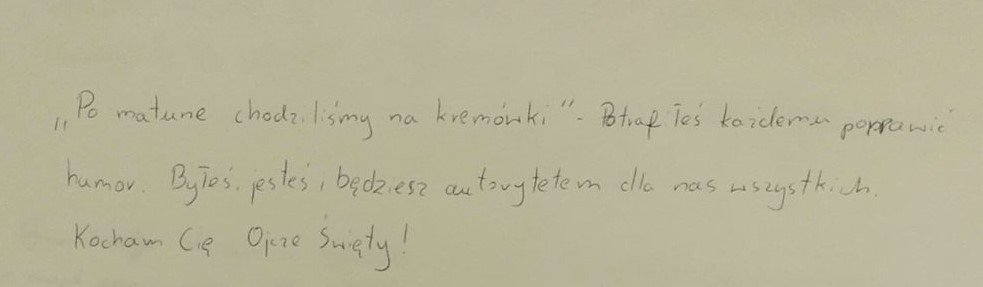 „Po maturze chodziliśmy na kremówki” - Potrafiłeś każdemu poprawić
humor. Byłeś, jesteś i będziesz autorytetem dla nas wszystkich.
Kocham Cię Ojcze Święty!